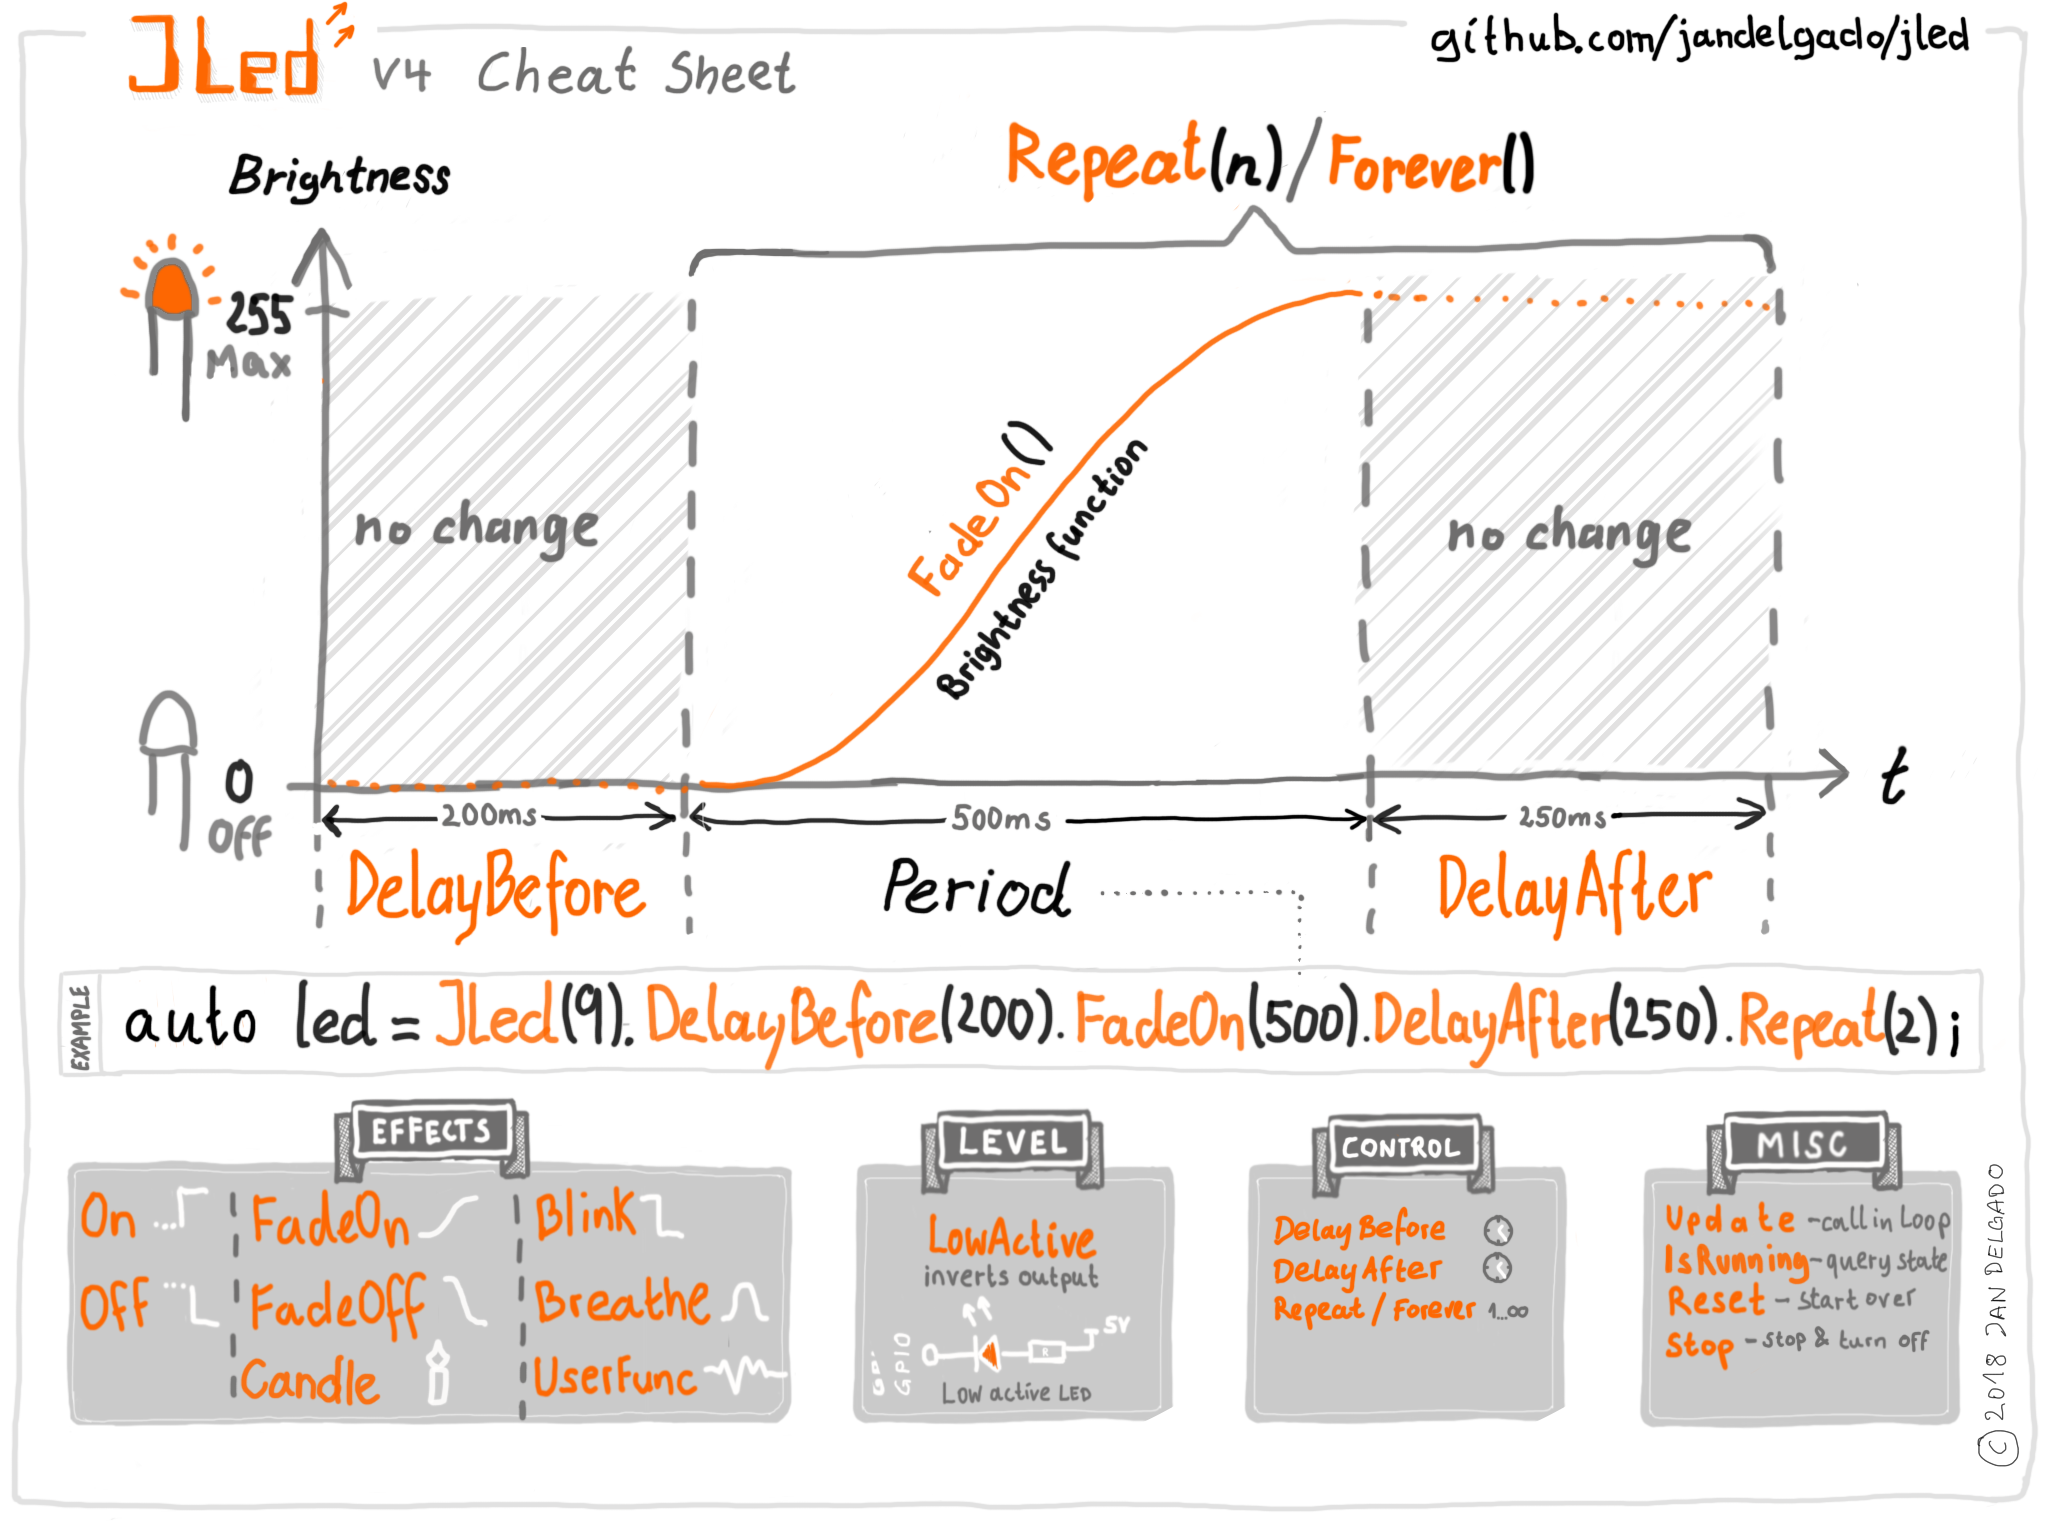 JLed V4 Cheat Sheet
github.com/jandelgado/jled
Repeat(n)/Forever()
Brightness
255
Max
no change
FadeOn()
Brightness function
no change
0
Off
t
200ms
500ms
250ms
DelayBefore
Period
DelayAfter
EXAMPLE
auto led = JLed(9).DelayBefore(200).FadeOn(500).DelayAfter(250).Repeat(2);
EFFECTS
On
FadeOn
Blink
Off
FadeOff
Breathe
Candle
UserFunc
LEVEL
LowActive
inverts output
GPIO
R
5V
Low active LED
CONTROL
DelayBefore
DelayAfter
Repeat / Forever 1...∞
MISC
Update - call in Loop
IsRunning - query state
Reset - start over
Stop - stop & turn off
© 2018 JAN DELGADO